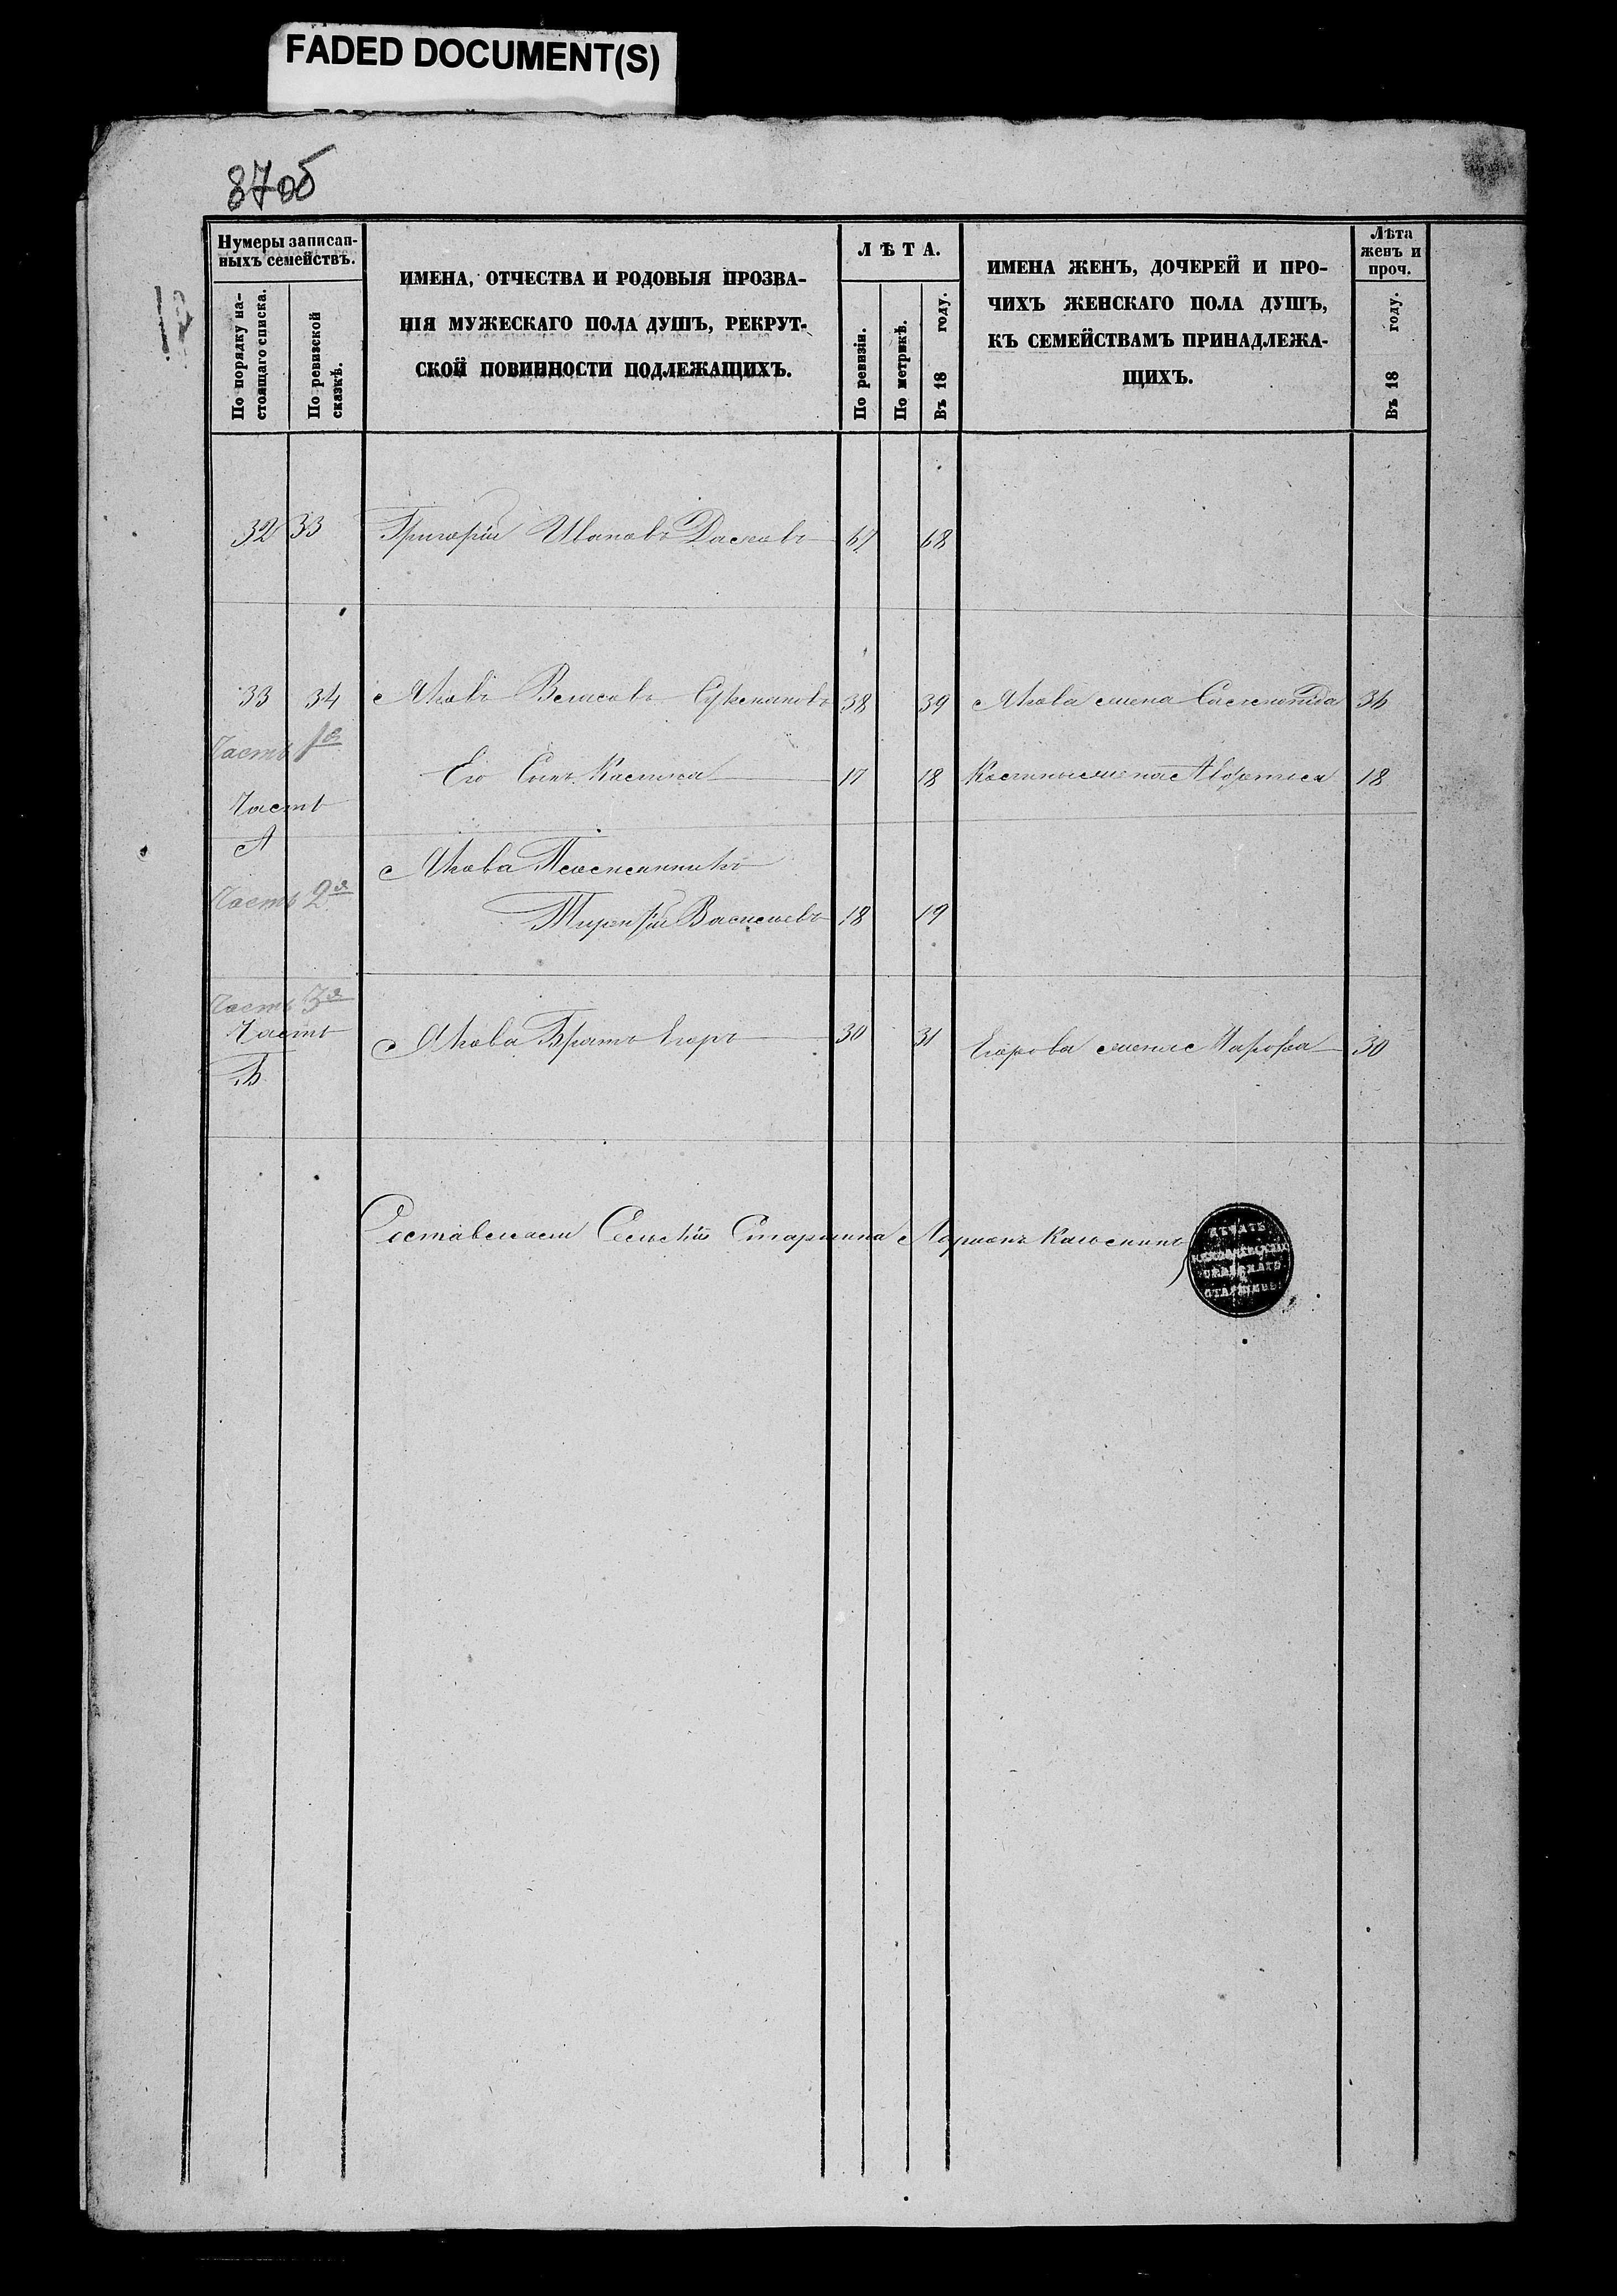 FADED DOCUMENT(S)
87об
Нумеры записан-
ныхъ семействъ.
По порядку на-
стоящаго списка.
По ревизской
сказкѣ.
ИМЕНА, ОТЧЕСТВА И РОДОВЫЯ ПРОЗВА-
НІЯ МУЖЕСКАГО ПОЛА ДУШЪ, РЕКРУТ-
СКОЙ ПОВИННОСТИ ПОДЛЕЖАЩИХЪ.
ЛѢТА.
По ревизіи.
По метрикѣ.
Въ 18 году.
ИМЕНА ЖЕНЪ, ДОЧЕРЕЙ И ПРО-
ЧИХЪ ЖЕНСКАГО ПОЛА ДУШЪ,
КЪ СЕМЕЙСТВАМЪ ПРИНАДЛЕЖА-
ЩИХЪ.
Лѣта
женъ и
проч.
Въ 18 году.
32 33 Григорій Ивановъ 67 68
33 34 Яковъ Власовъ 38 39 Якова жена 36
Часть 1я
Его Сынъ Касьянъ 17 18 жена 18
Часть
А
Якова Племянникъ
Часть 2я
Васильевъ 18 19
Часть 3я
Часть
Б
Якова Братъ Егоръ 30 31 Егорова жена 30
Составлялъ Сельскій Старшина
ПЕЧАТЬ
СЕЛЬСКАГО
СТАРШИНЫ